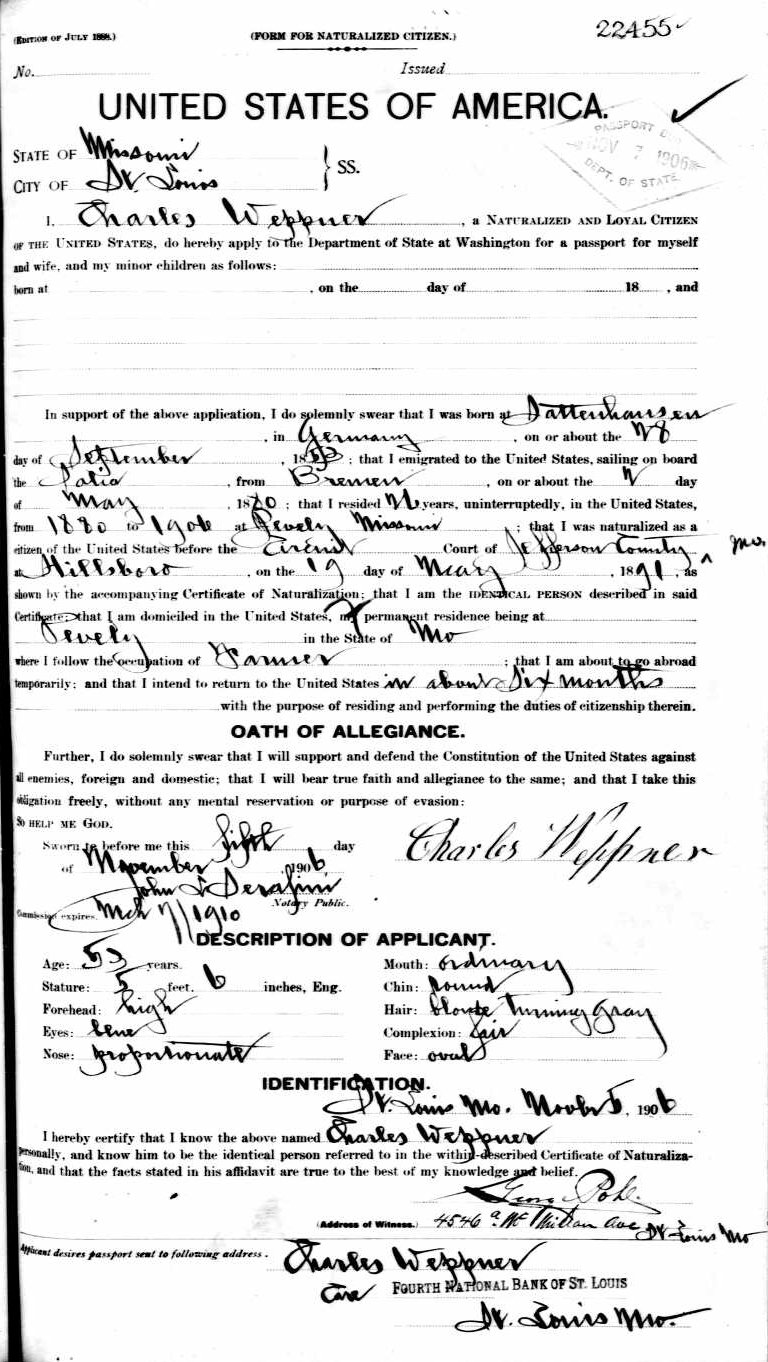 (Edition of July 1888.) (FORM FOR NATURALIZED CITIZEN.) 22455
No. Issued
UNITED STATES OF AMERICA.
PASSPORT
NOV 7 1906
DEPT. OF STATE
STATE OF Missouri
CITY OF St. Louis } SS.
I, Charles Weppner, a NATURALIZED AND LOYAL CITIZEN
OF THE UNITED STATES, do hereby apply to the Department of State at Washington for a passport for myself
and wife, and my minor children as follows:
born at , on the day of 18 , and
In support of the above application, I do solemnly swear that I was born at Dattenhausen
, in Germany , on or about the 28
day of September , 1853 ; that I emigrated to the United States, sailing on board
the , from Bremen , on or about the 2 day
of May 1880 ; that I resided 26 years, uninterruptedly, in the United States,
from 1880 to 1906 at Pevely Missouri ; that I was naturalized as a
citizen of the United States before the Circuit Court of Jefferson County Mo.
at Hillsboro , on the 19 day of May , 1891, as
shown by the accompanying Certificate of Naturalization; that I am the IDENTICAL PERSON described in said
Certificate; that I am domiciled in the United States, my permanent residence being at
Pevely in the State of Mo
where I follow the occupation of Farmer ; that I am about to go abroad
temporarily; and that I intend to return to the United States in about Six months
with the purpose of residing and performing the duties of citizenship therein.
OATH OF ALLEGIANCE.
Further, I do solemnly swear that I will support and defend the Constitution of the United States against
all enemies, foreign and domestic; that I will bear true faith and allegiance to the same; and that I take this
obligation freely, without any mental reservation or purpose of evasion:
SO HELP ME GOD.
Sworn to before me this fifth day
of November , 1906 Charles Weppner
John L Serafini
Notary Public.
Commission expires Mch 7/1910
DESCRIPTION OF APPLICANT.
Age: 53 years. Mouth: ordinary
Stature: 5 feet, 6 inches, Eng. Chin: round
Forehead: high Hair: blonde turning gray
Eyes: blue Complexion: fair
Nose: proportionate Face: oval
IDENTIFICATION.
St. Louis Mo. Novbr 5, 1906
I hereby certify that I know the above named Charles Weppner
personally, and know him to be the identical person referred to in the within-described Certificate of Naturaliza-
tion, and that the facts stated in his affidavit are true to the best of my knowledge and belief.
(Address of Witness.) 4546 a Mc Millan Ave St. Louis Mo
Applicant desires passport sent to following address. Charles Weppner
Care FOURTH NATIONAL BANK OF ST. LOUIS
St. Louis Mo.